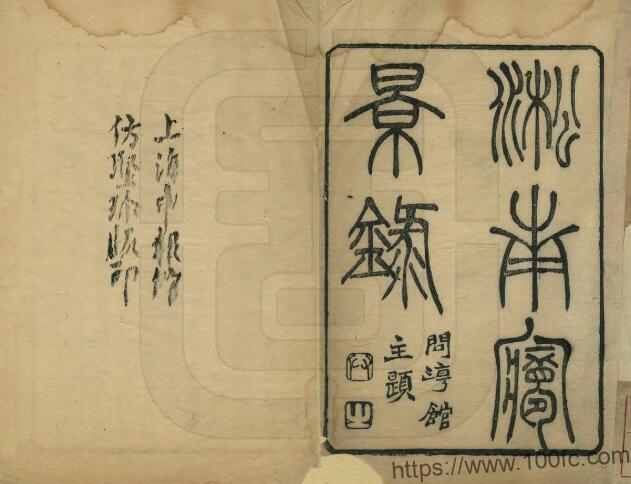 淞南夢
景錄
問淳館
主題
上海申報館
仿聚珍版印
https://www.100fc.com